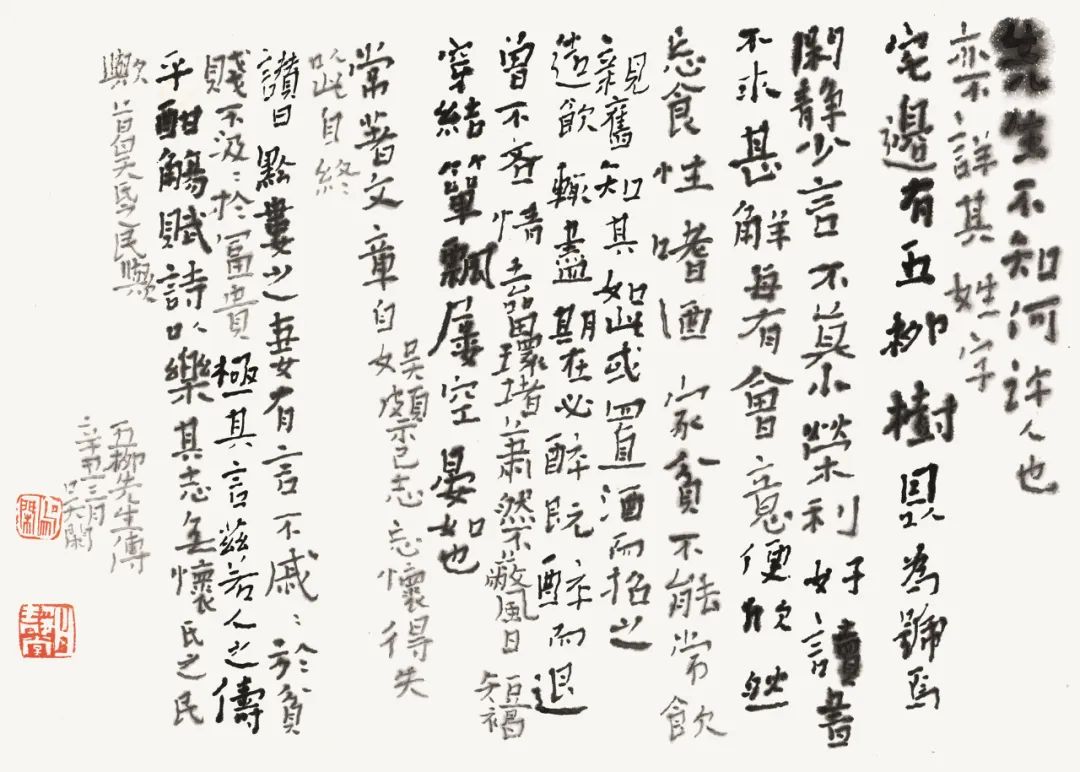 先生不知何許人也
亦不詳其姓字
宅邊有五柳樹因以為號焉
閑静少言不慕榮利好讀書
不求甚解每有會意便欣然
忘食性嗜酒家貧不能常飲
親舊知其如此或置酒而招之
造飲輒盡期在必醉既醉而退
曾不吝情去留環堵蕭然不蔽風日短褐
穿結簞瓢屢空晏如也
常著文章自娛頗示己志忘懷得失
以此自終
讚曰黔婁之妻有言不戚〻於貧
賤不汲〻於富貴極其言茲若人之儔
乎酣觴賦詩以樂其志無懷氏之民
歟葛天氏之民歟
五柳先生傳
辛丑三月